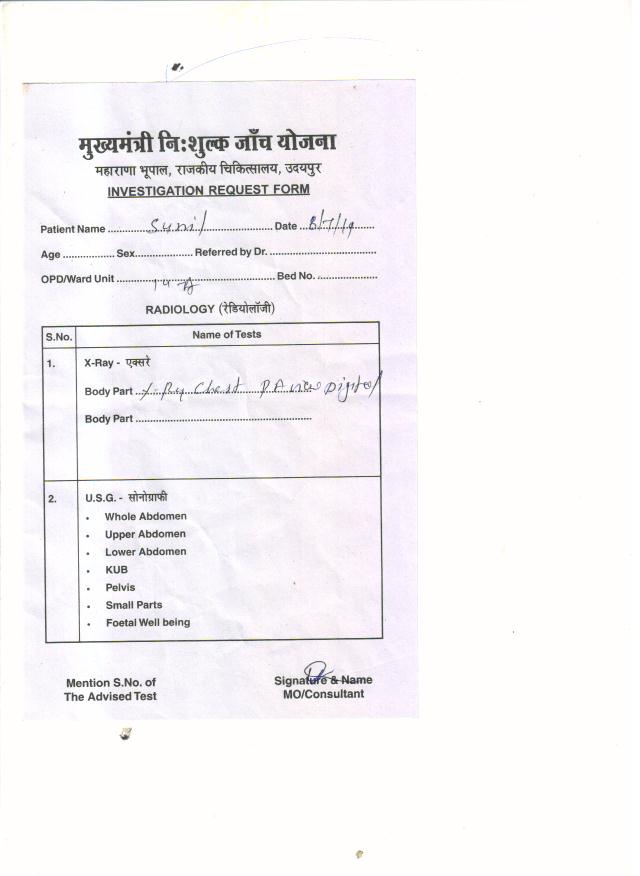 मुख्यमंत्री नि:शुल्क जाँच योजना
महाराणा भूपाल, राजकीय चिकित्सालय, उदयपुर
INVESTIGATION REQUEST FORM
Patient Name ........ Sunil ........ Date ... 8/7/19 ......
Age ................ Sex.................. Referred by Dr. .....................................
OPD/Ward Unit ........................................................ Bed No. .....................
RADIOLOGY (रेडियोलॉजी)
S.No. Name of Tests
1. X-Ray - एक्सरे
Body Part ... X-Ray Chest PA view Digital
Body Part .............................................................
2. U.S.G. - सोनोग्राफी
• Whole Abdomen
• Upper Abdomen
• Lower Abdomen
• KUB
• Pelvis
• Small Parts
• Foetal Well being
Mention S.No. of Signature & Name
The Advised Test MO/Consultant